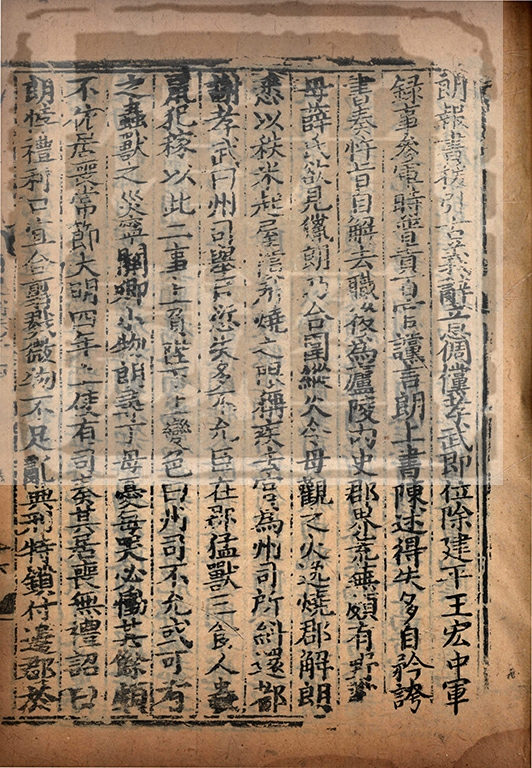 朗報書援引古義辭意倜儻孝武即位除建平王宏中軍
録事參軍時普責百官讜言朗上書陳述得失多自矜誇
書奏忤旨自解去職後為廬陵內史郡界荒蕪頗有野獸
母薛氏欲見獵朗乃合圍縱火令母觀之火逸燒郡解朗
悉以秩米起屋償所燒之限稱疾去官為州司所糾還都
謝孝武曰州司舉臣愆失多不允臣在郡猛獸三食人蟲
鼠犯稼以此二事上負陛下上變色曰州司不允或可有
之蟲獸之災寧關卿小物朗尋丁母憂每哭必慟其餘頗
不依居喪常節大明四年上使有司奏其居喪無禮詔曰
朗悖禮利口宜合翦戮微物不足亂典刑特鎖付邊郡於